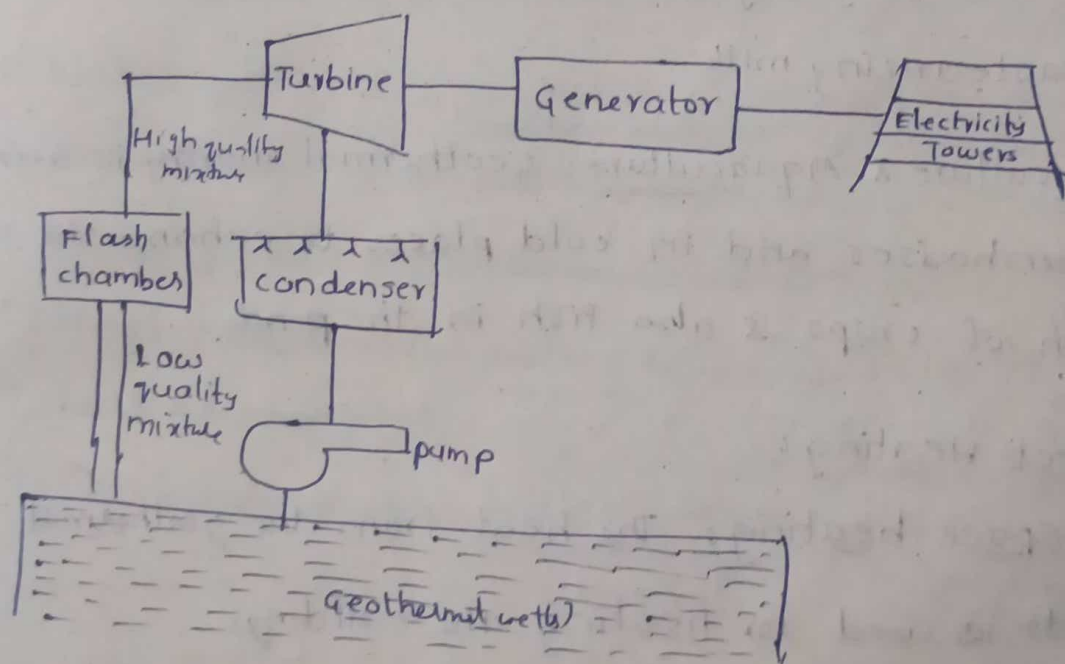 Turbine
Generator
Electricity
Towers
High quality
mixture
Flash
chamber
condenser
Low
quality
mixture
pump